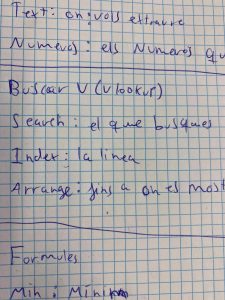 Text: on vols extraure
Numeros: els Numeros qu
Buscar V (vlookup)
Search: el que busques
Index: la linea
Arrange: fins a on es most
Formules
Min: Minim